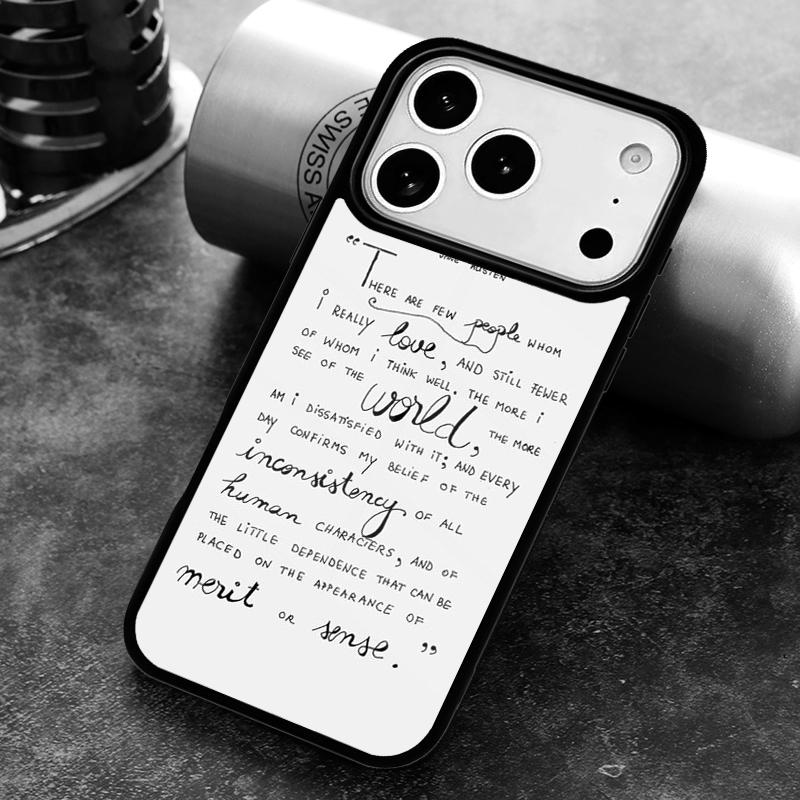 SWISS
JANE AUSTEN
“THERE ARE FEW people WHOM
i REALLY love, AND STILL FEWER
OF WHOM i THINK WELL. THE MORE i
SEE OF THE world, THE MORE
AM i DISSATISFIED WITH IT; AND EVERY
DAY CONFIRMS MY BELIEF OF THE
inconsistency OF ALL
human CHARACTERS, AND OF
THE LITTLE DEPENDENCE THAT CAN BE
PLACED ON THE APPEARANCE OF
merit OR sense.”